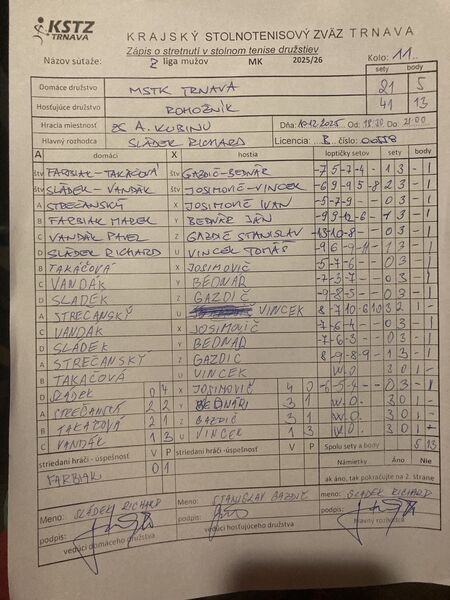 KSTZ TRNAVA KRAJSKÝ STOLNOTENISOVÝ ZVÄZ TRNAVA
Zápis o stretnutí v stolnom tenise družstiev
Názov súťaže: 2 liga mužov MK 2025/26 Kolo: 11.
sety body
Domáce družstvo MSTK TRNAVA 21 5
Hosťujúce družstvo ROHOŽNÍK 41 13
Hracia miestnosť ZŠ A. KUBINU Dňa: 10.12.2025 Od 18:30 Do 21:00
Hlavný rozhodca SLÁDEK RICHARD Licencia B číslo:
A domáci X hostia loptičky setov sety body
štv FARBIAK-TAKÁČOVÁ štv GAZDIČ-BEDNÁR -7 5 -7 -4 - 1 3 - 1
štv SLÁDEK-VANDÁK štv JOSIMOVIČ-VINCEK -6 9 -9 5 -8 2 3 - 1
A STREČANSKÝ X JOSIMOVIČ IVAN -5 -7 -9 - - 0 3 - 1
B FARBIAK MAREK Y BEDNÁR JÁN 1 3 - 1
C VANDÁK PAVEL Z GAZDIČ STANISLAV -13 -10 -8 - - 0 3 - 1
D SLÁDEK RICHARD U VINCEK TOMÁŠ 1 3 - 1
B TAKÁČOVÁ X JOSIMOVIČ -5 -7 -6 - - 0 3 - 1
C VANDÁK Y BEDNÁR -2 -3 -7 - - 0 3 - 1
D SLÁDEK Z GAZDIČ -9 -8 -3 - - 0 3 - 1
A STREČANSKÝ U VINCEK 3 2 1 -
C VANDÁK X JOSIMOVIČ -7 -6 -4 - - 0 3 - 1
D SLÁDEK Y BEDNÁR -7 -6 -3 - - 0 3 - 1
A STREČANSKÝ Z GAZDIČ 8 -9 -8 -9 - 1 3 - 1
B TAKÁČOVÁ U VINCEK W.O. 3 0 1 -
D 0 4 X JOSIMOVIČ 4 0 -6 -5 -4 - - 0 3 - 1
A STREČANSKÝ 2 2 Y BEDNÁR 3 1 W.O. 3 0 1 -
B TAKÁČOVÁ 2 2 Z GAZDIČ 3 1 W.O. 3 0 1 -
C VANDÁK 1 3 U VINCEK 1 3 W.O. 3 0 1 -
striedaní hráči - úspešnosť V P striedaní hráči - úspešnosť V P Spolu sety a body 5 13
FARBIAK 0 1 Námietky Áno Nie
ak áno, tak pokračujte na 2. strane
Meno: SLÁDEK RICHARD Meno: STANISLAV GAZDIČ Meno: SLÁDEK RICHARD
podpis: podpis: podpis:
vedúci domáceho družstva vedúci hosťujúceho družstva hlavný rozhodca